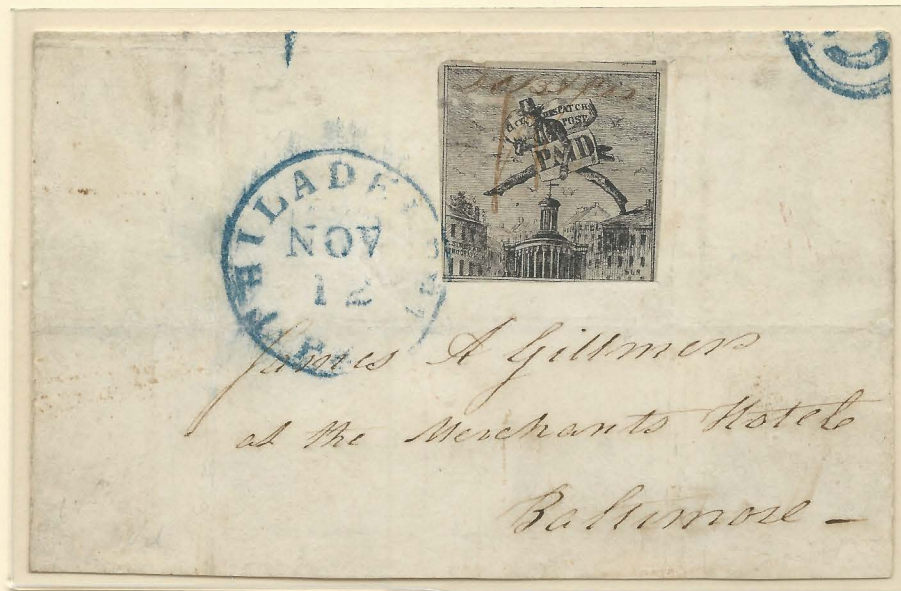 CITY DESPATCH
POST
PAID
PHILADELPHIA Pa
NOV
12
James A Gillmers
at the Merchants Hotel
Baltimore -